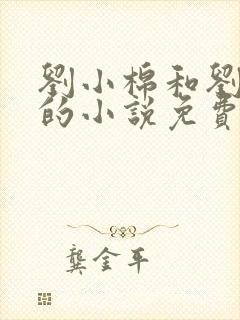 劉小棉和劉
的小說免費
龔金平